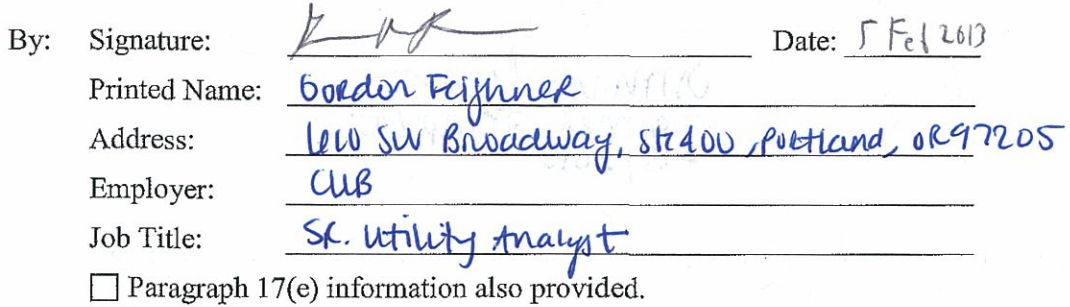 By: Signature: Date: 5 Feb 2013
Printed Name: Gordon Feighner
Address: 610 SW Broadway, Ste 400, Portland, OR 97205
Employer: CUB
Job Title: Sr. Utility Analyst
☐ Paragraph 17(e) information also provided.